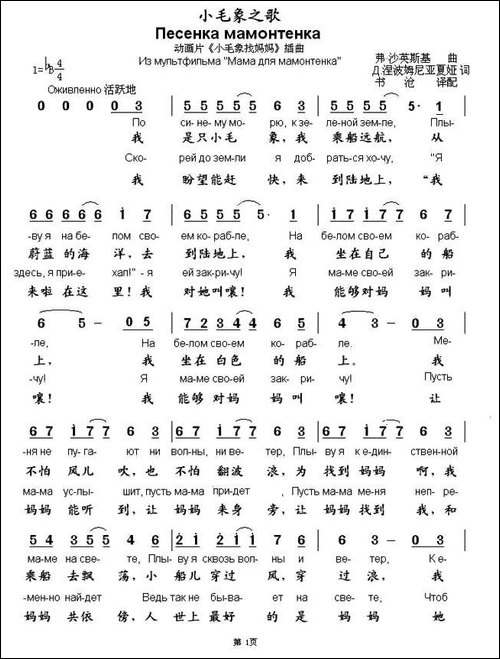 小毛象之歌
Песенка мамонтенка
动画片《小毛象找妈妈》插曲
Из мультфильма "Мама для мамонтенка"
弗·沙英斯基 曲
Д.涅波姆尼亚夏娅 词
书沧 译配
1=♭B 4/4
Оживленно 活跃地
0 0 0 0 0 3 | 5 5 5 5 5 6 | 5 5 5 5· 3 |
По си-не-му мо- рю, к зе- ле-ной зем-ле, Плы-
我 是只小毛 象，我 乘船远航， 从
Ско- рей до зем-ли я доб- рать-ся хо-чу, "Я
我 盼望能赶 快，来 到陆地上， “我
6 6 6 6 6 1 7 | 6 5 5 5 5· 1 | 1 7 1 7 1 7 6 7 |
-ву я на бе- лом сво- ем ко-раб-ле, На бе-лом сво-ем ко-раб-
蔚蓝的海 洋，去 到陆地上， 我 坐在自己 的 船
здесь, я при-е- хал!" - я ей зак-ри-чу! Я ма-ме сво-ей зак-ри-
来啦在这 里！我 对她叫嚷！ 我 能够对妈 妈 叫
6 5 – 0 5 | 7 2 3 4 4 6 5 | 4 3 – 0 3 |
-ле, На бе-лом сво-ем ко- раб- ле. Ме-
上， 我 坐在白色 的 船 上。 我
-чу! Я ма-ме сво-ей зак- ри- чу! Пусть
嚷！ 我 能够对妈 妈 叫 嚷！ 让
6 7 1 7 7 6 3 | 6 7 1 7 7 6 3 | 6 7 1 7 7 6 3 |
-ня не пу-га- ют ни вол-ны, ни ве- тер, Плы- ву я к е-дин- ствен-ной
不怕风儿 吹，也 不怕翻波 浪，为 找到妈妈 啊，我
ма-ма ус-лы- шит, пусть ма-ма при-дет , Пусть ма-ма ме-ня неп-ре-
妈妈能听 到，让 妈妈来身 旁，让 妈妈找到 我，和
5 4 3 5 5 4 3 | 6 2 1 2 2 1 7 | 6 7 1 7 7 6 3 |
ма-ме на све- те, Плы- ву я сквозь вол- ны и ве- тер, К е-
乘船去飘 荡，小 船儿穿过 风，穿 过 浪，我
-мен-но най-дет Ведь так не бы-ва- ет на све-те, Чтоб
妈妈共依 傍，人 世上最好 的 是 妈妈 她
第 1页